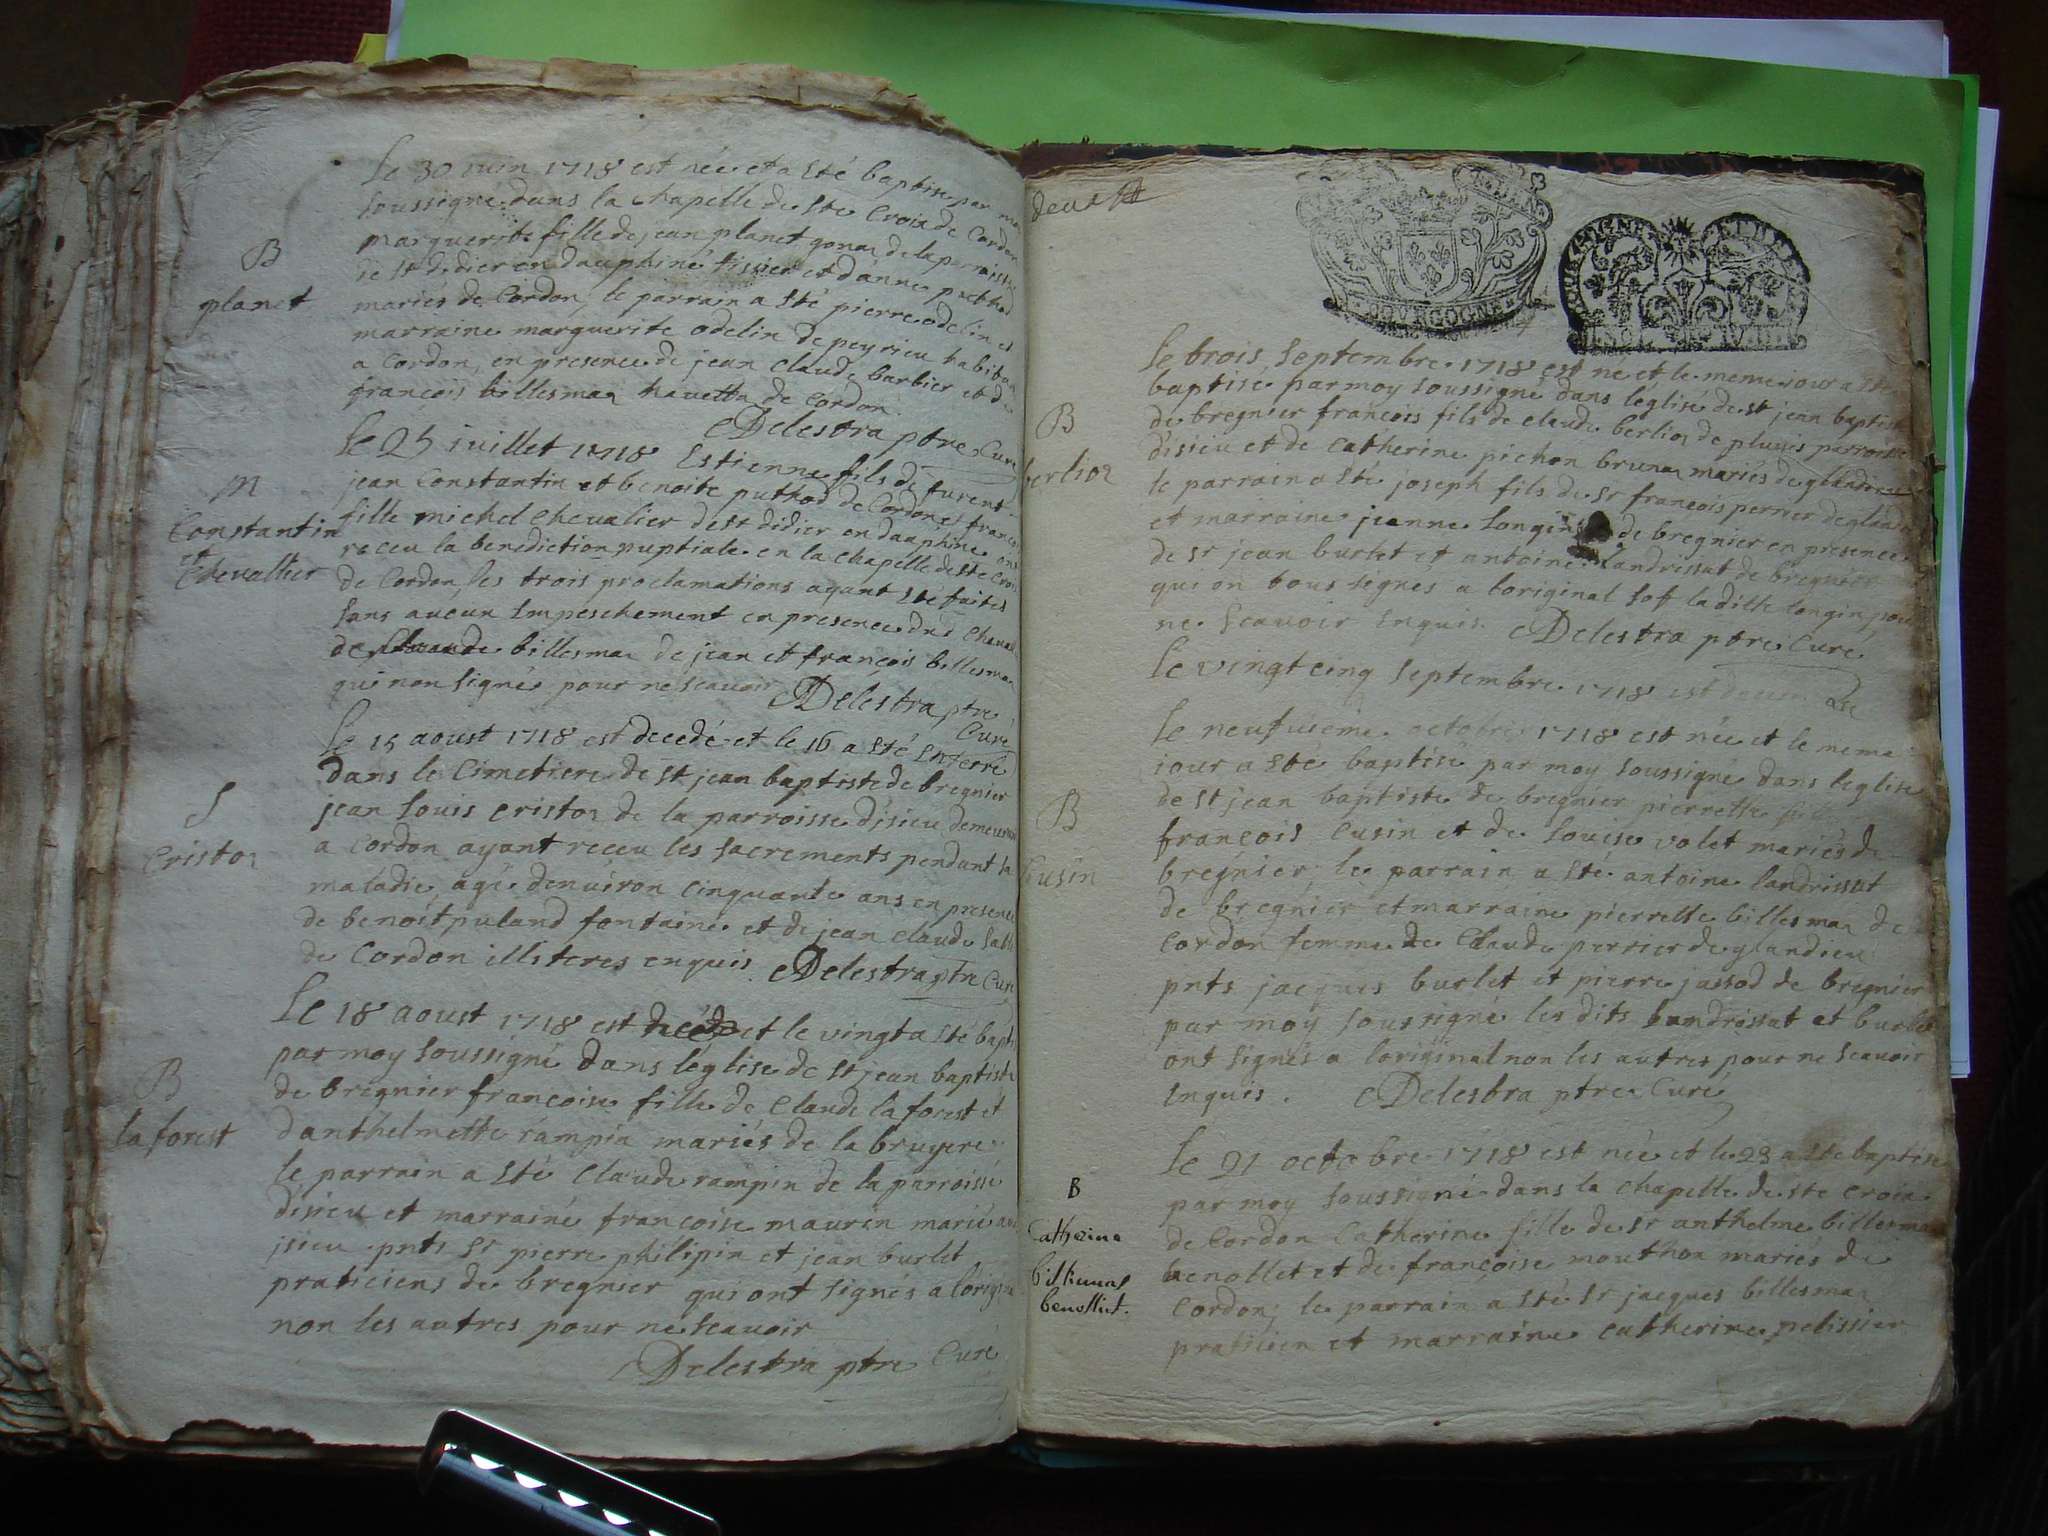 Le 30 iuin 1718 est née et a sté baptise par moy
soussigné dans la chapelle de ste Croix de Cordon
marguerite fille de jean planet gonaz de la parroisse
de st didier en dauphiné tissier et danne puthod
mariés de Cordon, le parrain a sté pierre odelin et
marraine marguerite odelin de peyrieu habitan
a Cordon, en presence de jean claude barbier et de
françois billesmaz havetta de Cordon.
Delestra ptre Curé
B
planet
Le 25 iuillet 1718 Estienne fils de furent
jean Constantin et benoite puthod de Cordon et françoi
fille michel Chevalier de st didier en dauphine ont
receu la benediction nuptiale en la chapelle de ste Croix
de Cordon, les trois proclamations ayant sté faites
sans aucun Impeschement en presence dud Cheval
de Claude billesmaz de jean et françois billesmaz
qui non signé pour ne scavoir Delestra ptre
Curé
M
Constantin
et
Chevallier
Le 15 aoust 1718 est decedé et le 16 a sté Enterré
dans le Cimetiere de st jean baptiste de bregnier
jean louis cristoz de la parroisse disieu demeurant
a Cordon ayant receu les sacrements pendant sa
maladie agé denuiron cinquante ans en presence
de benoit puland fontaine et de jean claude
de Cordon illiteres enquis. Delestra ptre Curé
S
Cristoz
Le 18 aoust 1718 est et le vingt a sté bapti
par moy soussigné dans léglise de st jean baptiste
de bregnier francoise fille de Claude la forest et
danthelmette rampin mariés de la bruyere
le parrain a sté Claude rampin de la parroisse
disieu et marraine françoise maurin marié au
jsieu pnts sr pierre philipin et jean burlet
praticiens de bregnier qui ont signés a lorigina
non les autres pour ne scavoir
Delestra ptre Curé
B
la forest
BOURGOGNE
Le trois, septembre 1718 est ne et le meme iour a sté
baptisé par moy soussigné dans léglise de st jean baptiste
de bregnier françois fils de claude berlioz de pluvis parroisse
disieu et de Catherine pichon brunaz mariés de glandieu
le parrain a sté joseph fils de sr francois perrier de glandieu
et marraine jeanne longin de bregnier en presence
de sr jean burlet et antoine landrissat de bregnier
qui on tous signes a loriginal sof laditte longin pour
ne scavoir Enquis. Delestra ptre Curé
B
berlioz
Le vingt cinq septembre 1718 est
Le neufuieme octobre 1718 est née et le meme
iour a sté baptisé par moy soussigné dans leglise
de st jean baptiste de bregnier pierrette fille
françois Cusin et de louise volet mariés de
bregnier, le parrain a sté antoine landrissat
de bregnier et marraine pierrette billesmaz de
Cordon femme de Claude perrier de glandieu
pnts jacques burlet et pierre jassod de bregnier
par moy soussigné les dits landrissat et burlet
ont signés a loriginal non les autres pour ne scavoir
Enquis. Delestra ptre Curé
B
Cusin
Le 21 octobre 1718 est née et le 23 a sté baptisé
par moy soussigné dans la chapelle de ste Croix
de Cordon Catherine fille de sr anthelme billesmaz
benollet et de françoise mouthon mariés de
Cordon; le parrain a sté sr jacques billesmaz
praticien et marraine catherine pelissier
B
Catherine
billiemas
benolliet.